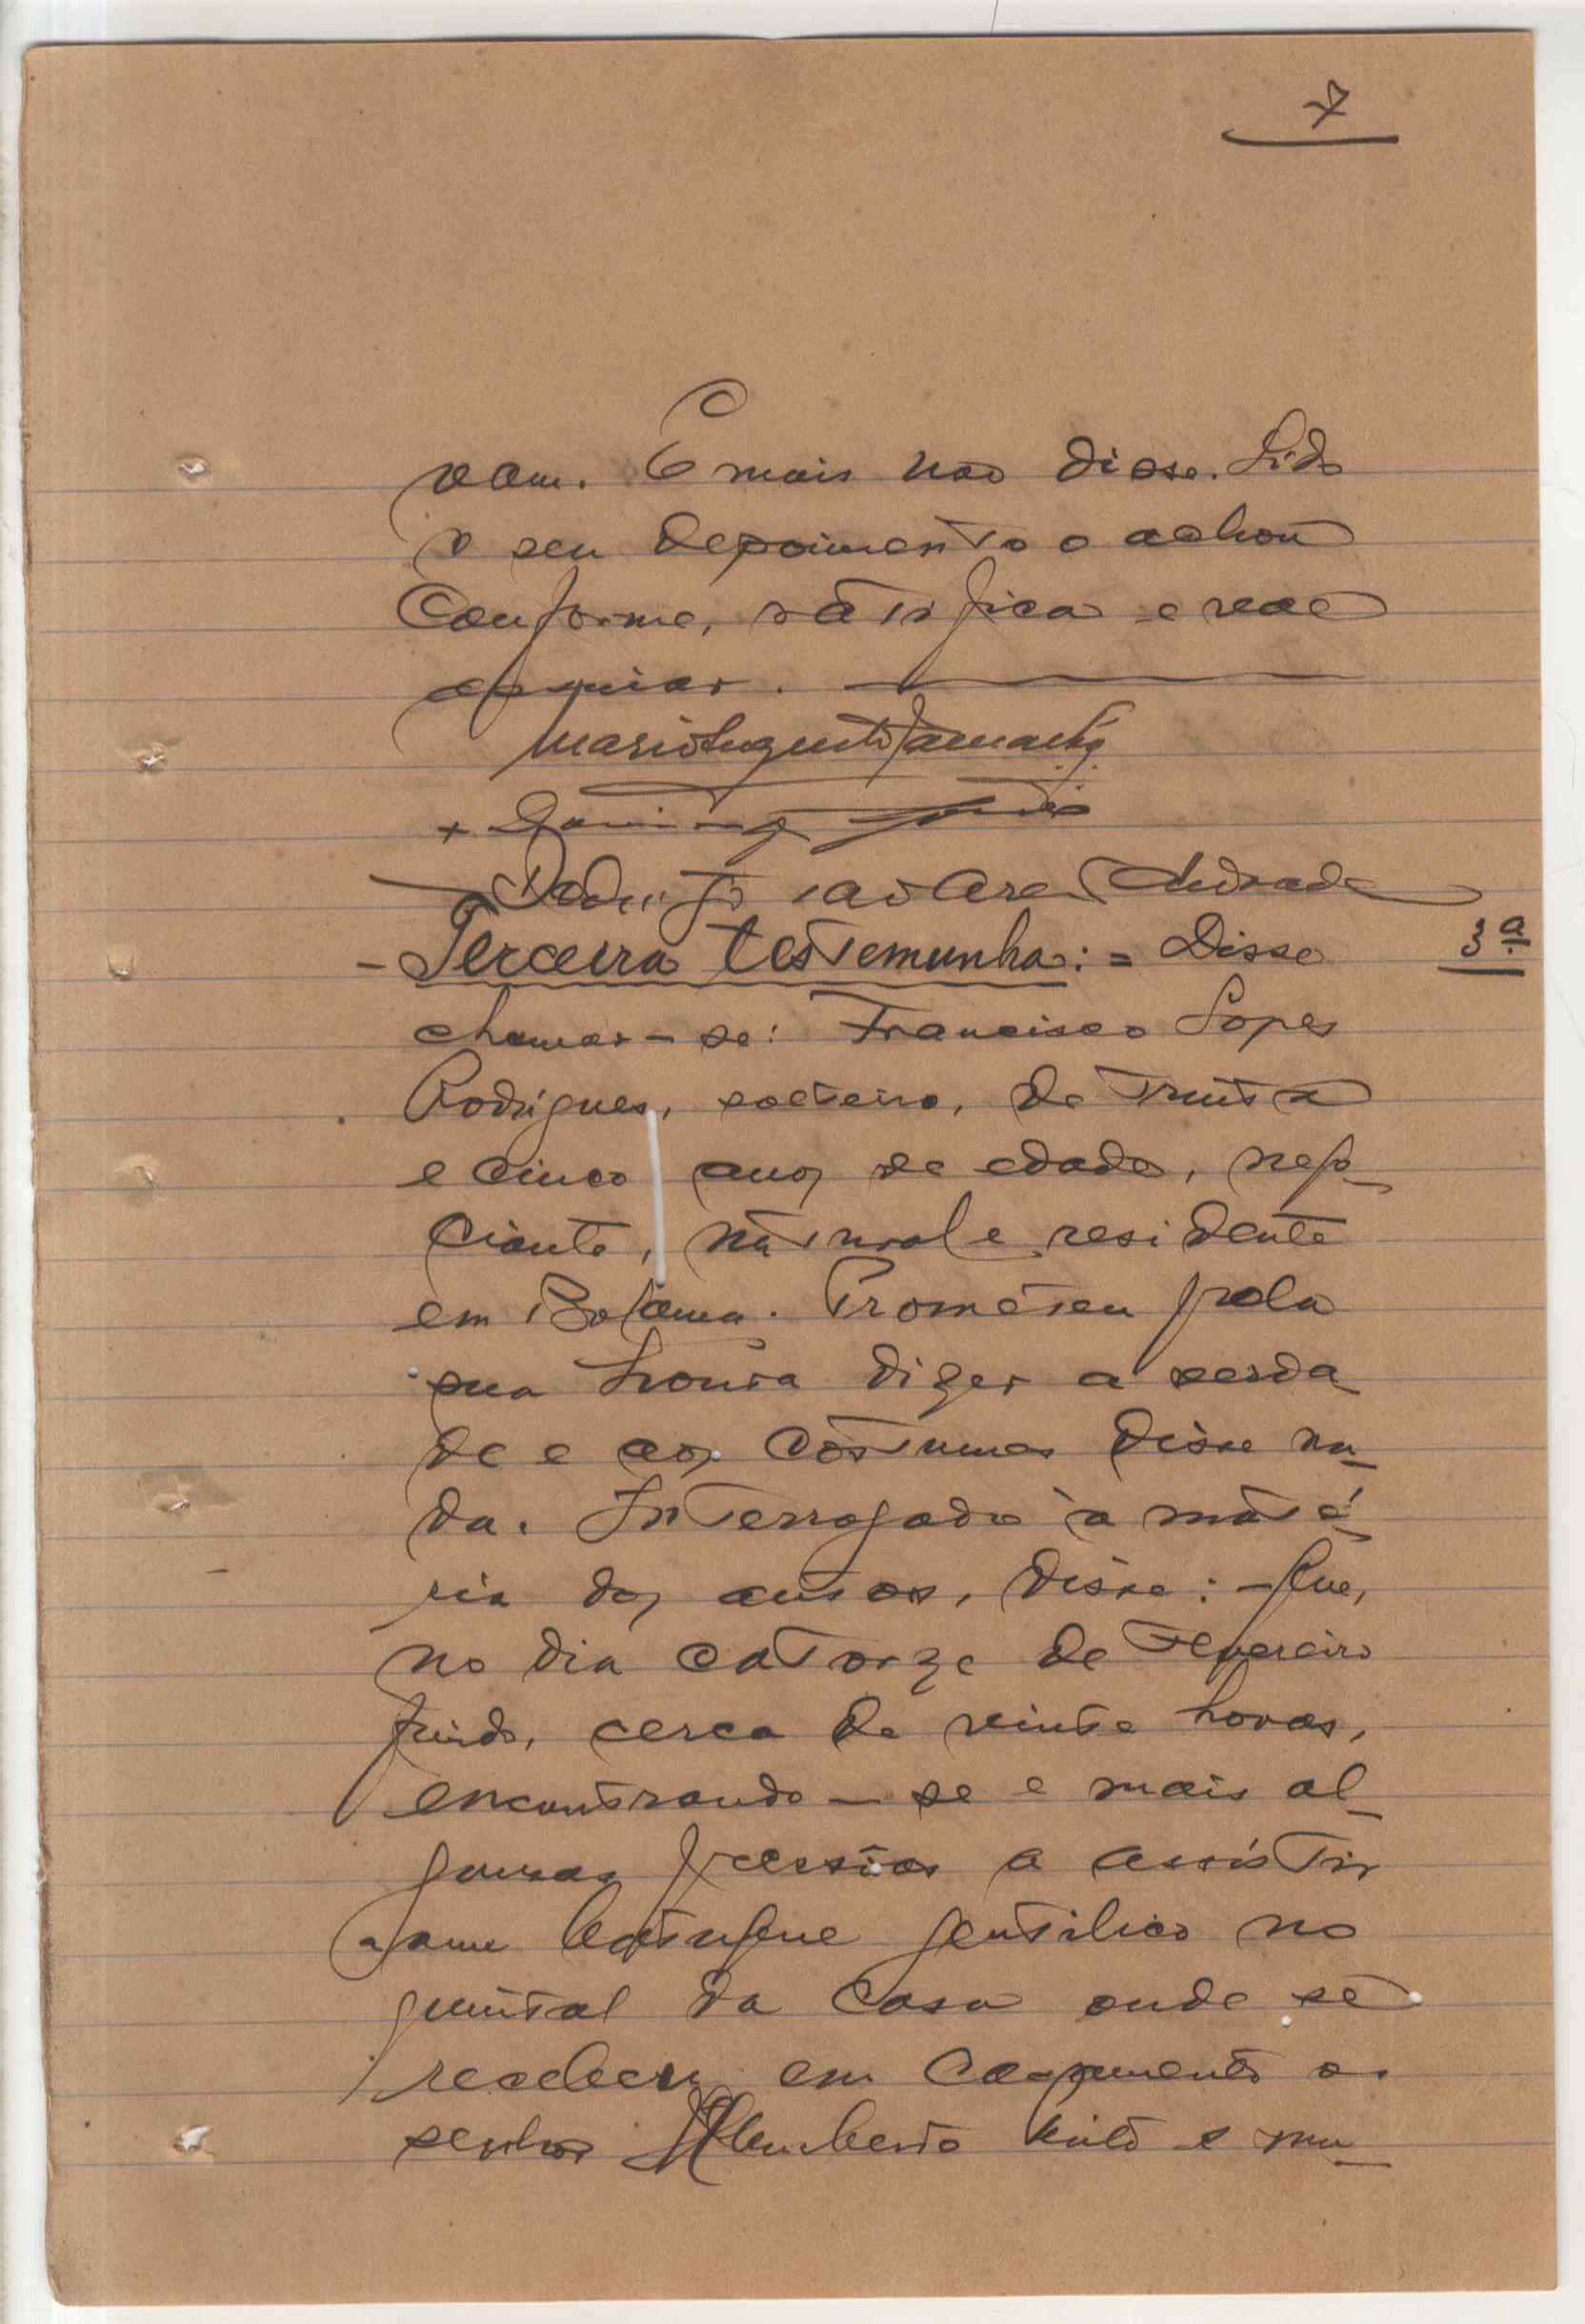 7
vam. E mais não disse. Lido
o seu depoimento o achou
conforme, ratifica e vae
assinar.
Mario Augusto
+ Domingos
Andrade
- Terceira testemunha: = Disse
3ª
chamar-se: Francisco Lopes
Rodrigues, solteiro, de trinta
e cinco anos de edade, nego-
ciante, natural e residente
em Bolama. Prometeu pela
sua honra dizer a verda-
de e aos costumes disse na-
da. Interrogado à maté-
ria dos autos, disse: - Que,
no dia catorze de Fevereiro
findo, cerca de vinte horas,
encontrando-se e mais al-
gumas pessoas a assistir
a um batuque gentilico no
quintal da casa onde se
recebeu em casamento o
senhor Humberto e mu-